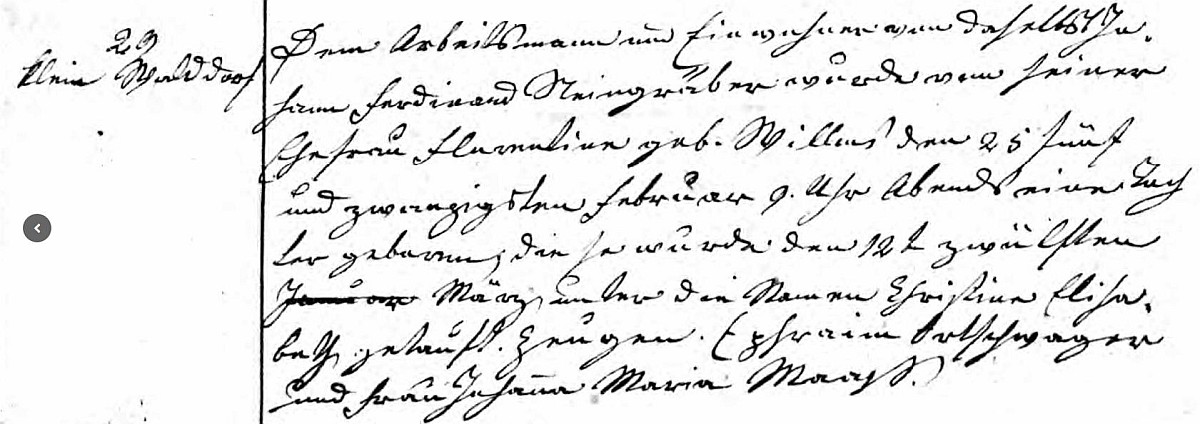 29
Klein Walddorf
Dem Arbeitsmann und Einwohner von daselbst Jo-
hann Ferdinand Steingräber wurde von seiner
Ehefrau Florentine geb. Willms den 25 fünf
und zwanzigsten Februar 9. Uhr Abends eine Toch
ter geboren, diese wurde den 12t zwölften
Januar März unter die Namen Christine Elisa-
beth getauft. Zeugen. Ephraim Ortschwager
und Frau Johanna Maria Maass.